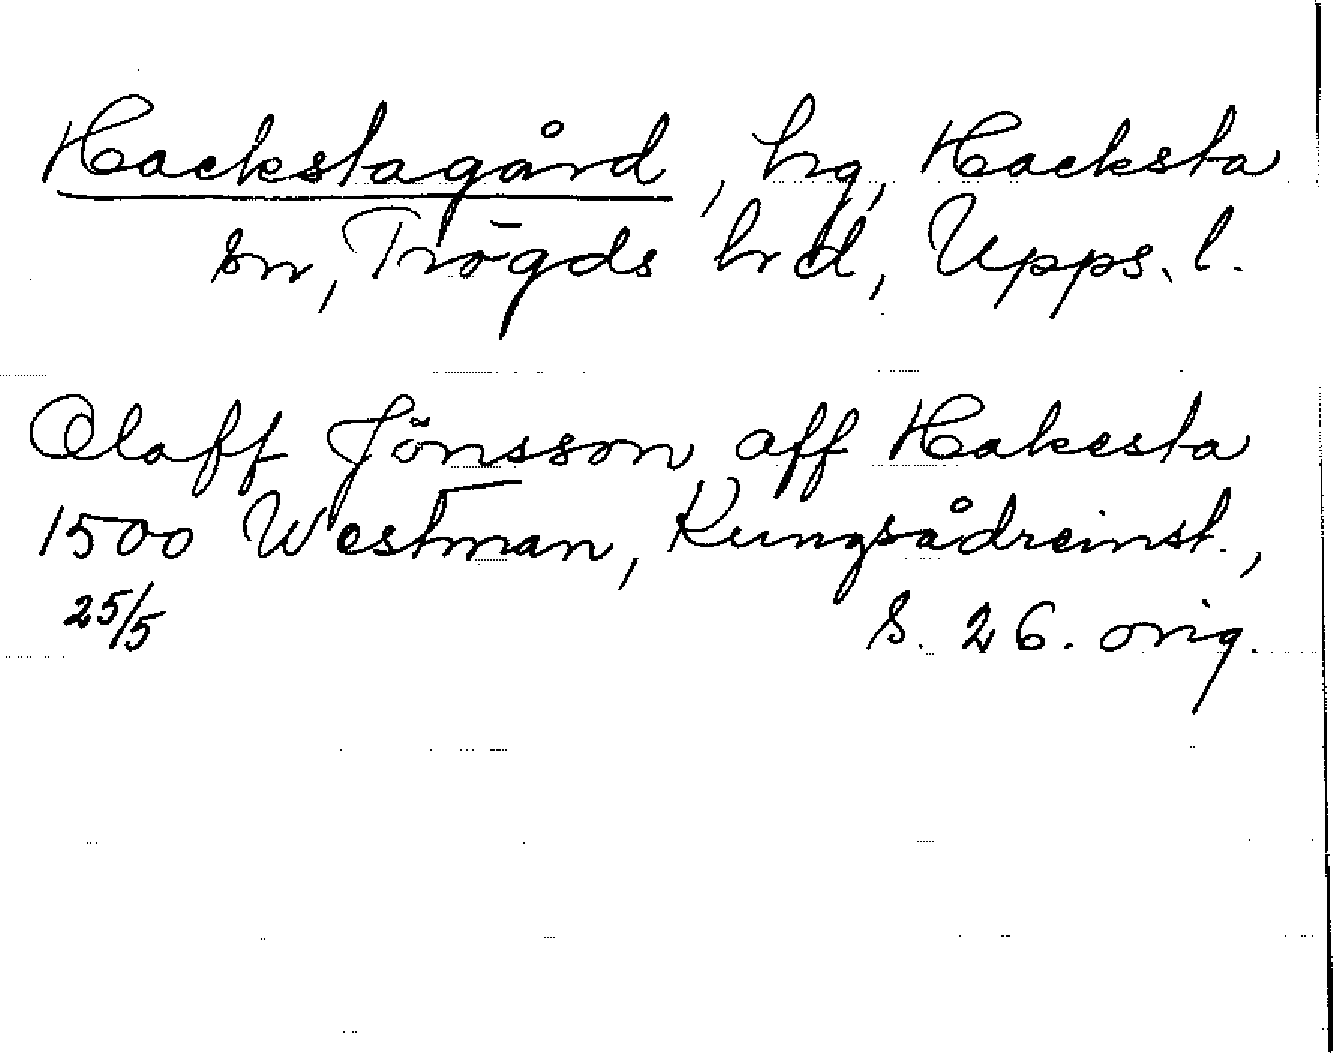 Hackstagård, hg, Hacksta
sn, Trögds hd, Upps. l.
Olaff Jönsson aff Hakesta
1500 Westman, Kungsådreinst.,
25/5 S. 26. orig.